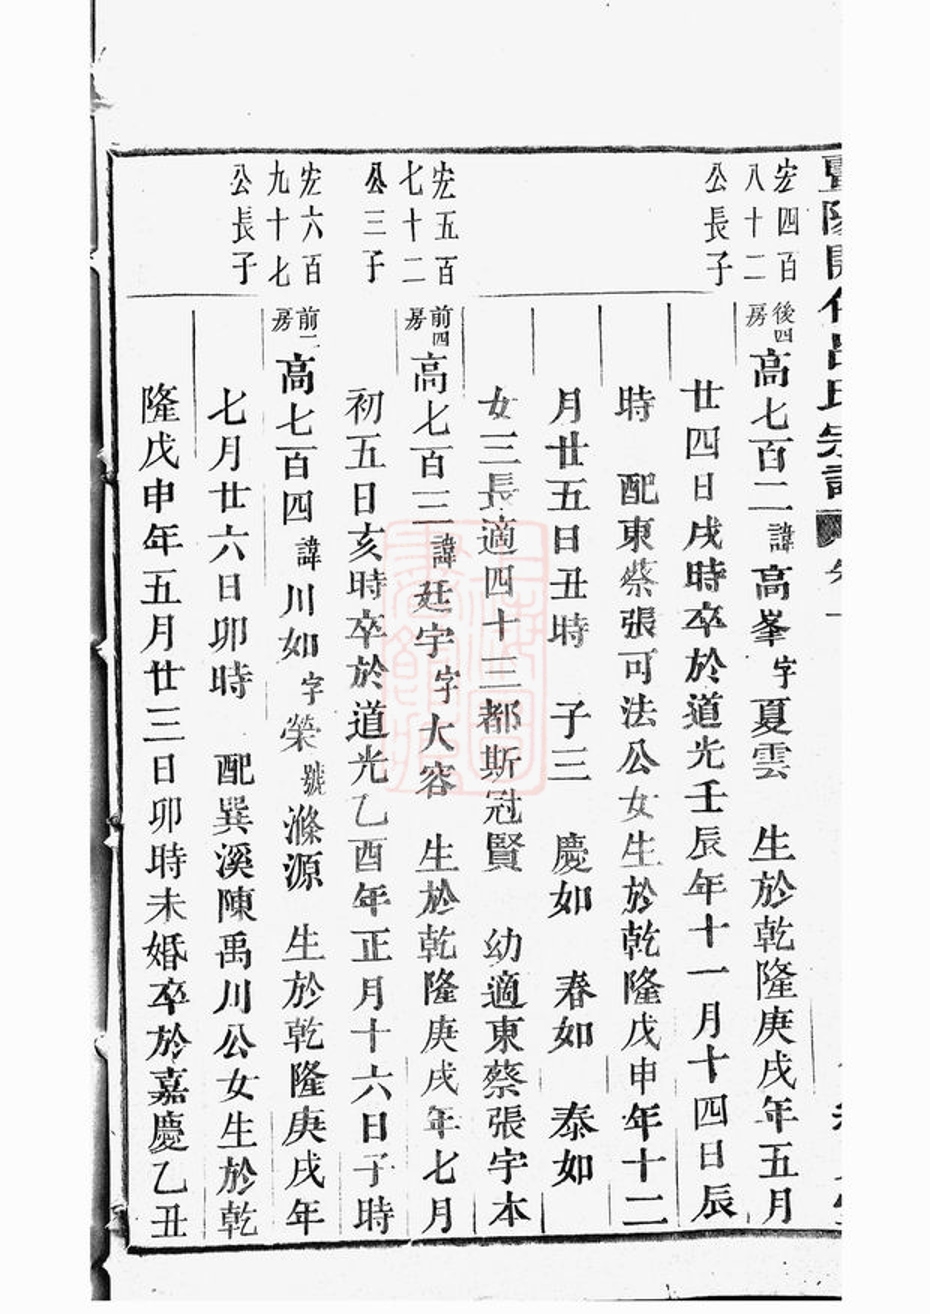 暨陽開化呂氏宗譜
宏四百
八十二
公長子
後四
房
高七百二諱高峯字夏雲 生於乾隆庚戌年五月
廿四日戌時卒於道光壬辰年十一月十四日辰
時 配東蔡張可法公女生於乾隆戊申年十二
月廿五日丑時 子三 慶如 春如 泰如
女三長適四十三都斯冠賢 幼適東蔡張宇本
宏五百
七十二
公三子
前四
房
高七百三諱廷宇字大容 生於乾隆庚戌年七月
初五日亥時卒於道光乙酉年正月十六日子時
宏六百
九十七
公長子
前二
房
高七百四諱川如字榮號滌源 生於乾隆庚戌年
七月廿六日卯時 配巽溪陳禹川公女生於乾
隆戊申年五月廿三日卯時未婚卒於嘉慶乙丑